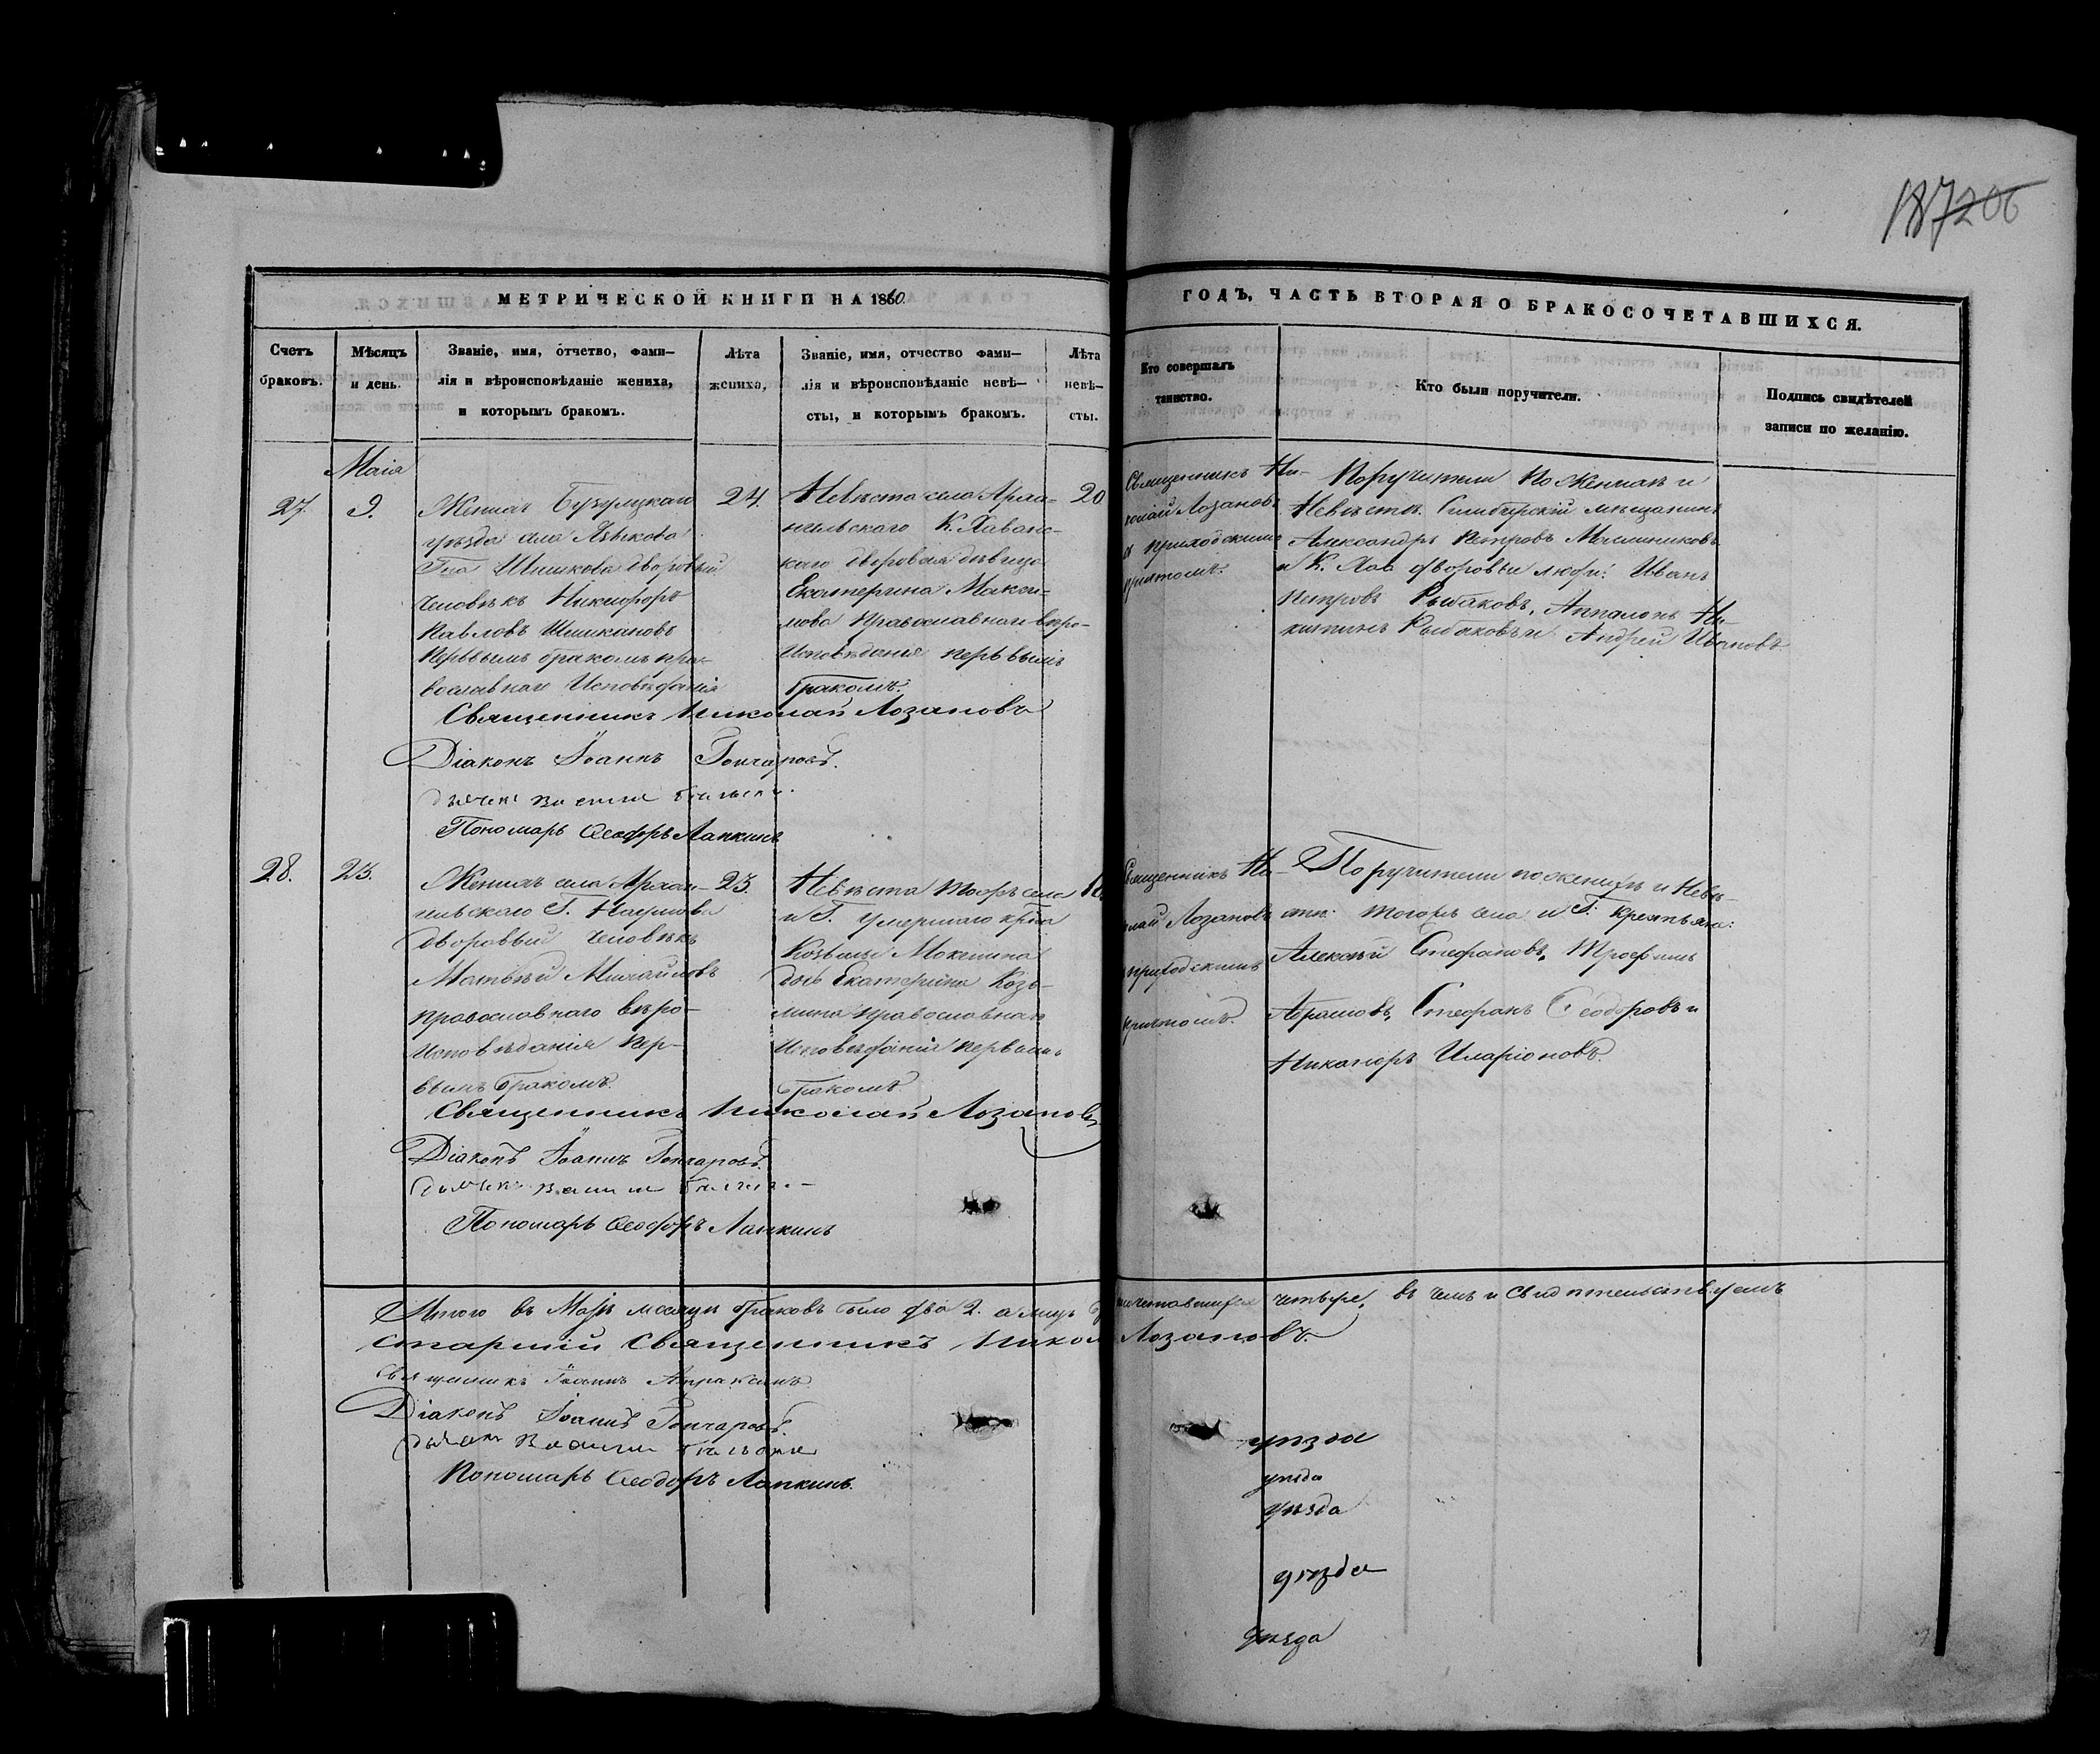 187 206
МЕТРИЧЕСКОЙ КНИГИ НА 1860
ГОДЪ, ЧАСТЬ ВТОРАЯ О БРАКОСОЧЕТАВШИХСЯ.
Счетъ
браковъ.
Мѣсяцъ
и день.
Званіе, имя, отчетво, фами–
лія и вѣроисповѣданіе жениха,
и которымъ бракомъ.
Лѣта
жениха,
Званіе, имя, отчество фами–
лія и вѣроисповѣданіе невѣ–
сты, и которымъ бракомъ.
Лѣта
невѣ–
сты.
Кто совершалъ
таинство.
Кто были поручители.
Подпись свидѣтелей
записи по желанію.
Маія
27.
9.
Женихъ Бузулуцкаго
уѣзда села Языкова
Гна Шишкова дворовый
человѣкъ Никифоръ
Павловъ Шишкановъ
Перьвымъ бракомъ пра–
вославнаго Исповѣданія
24.
Невѣста села Архан–
гельскаго К. Хаванс–
каго дворовая дѣвица
Екатерина Макси–
мова Православнаго вѣро–
Исповѣданія перьвымъ
бракомъ.
20
Священникъ Ни–
колай Лозановъ
съ приходскимъ
причтомъ.
Поручители По Женихѣ и
Невѣстѣ. Симбирскій мѣщанинъ
Александръ Петровъ Масленниковъ
и К. Хов дворовыи люди: Иванъ
Петровъ Рыбаковъ, Апполонъ Ни–
китинъ Рыбаковъ и Андрей Ивановъ
Священникъ Николай Лозановъ
Діаконъ Іоаннъ Гончаровъ.
дьячекъ
Пономарь Ѳеодоръ Лапкинъ
28.
23.
Женихъ села Архан–
гельскаго Г. Наумова
дворовый человѣкъ
Матвѣй Михайловъ
православнаго вѣро–
Исповѣданія пер–
вымъ бракомъ.
23.
Невѣста тогожъ села
и Г. умершаго крна
Козьмы Мокшина
дочь Екатерина Козь–
мина православнаго
Исповѣданія первымъ
бракомъ
Священникъ Ни–
колай Лозановъ
съ приходскимъ
причтомъ.
Поручители по женихѣ и Невѣ–
стѣ: тогожъ села и Г. крестьяна:
Алексѣй Стефановъ, Трофимъ
Абрамовъ, Стефанъ Ѳеодоровъ и
Никаноръ Иларіоновъ.
Священникъ Николай Лозановъ
Діаконъ Іоаннъ Гончаровъ.
дьячекъ
Пономарь Ѳеодоръ Лапкинъ
Итого въ Маѣ месяцѣ браковъ было два 2. а лицъ сочетавшихся четыре, въ чемъ и свидѣтельствуемъ
старшій Священникъ Никол Лозановъ.
Священникъ Іоаннъ
Діаконъ Іоаннъ Гончаровъ.
дьячекъ
Пономарь Ѳеодоръ Лапкинъ.
уѣзда
уѣзда
уѣзда
уѣзда
уѣзда